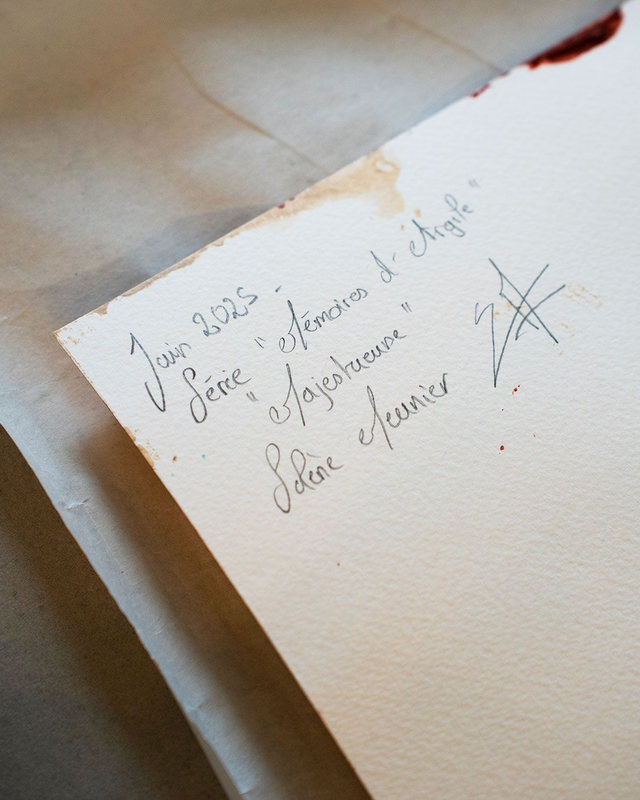 Juin 2025 -
Série "Mémoires d'Argile"
"Majestueuse"
Solène Meunier